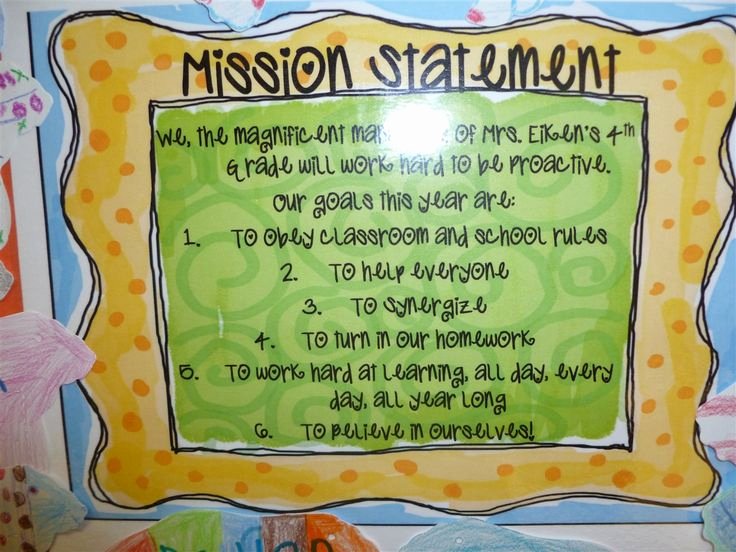 Mission Statement
We, the magnificent of Mrs. Eiken's 4th
Grade will work hard to be proactive.
Our goals this year are:
1. To obey classroom and school rules
2. To help everyone
3. To synergize
4. To turn in our homework
5. To work hard at learning, all day, every
day, all year long
6. To believe in ourselves!